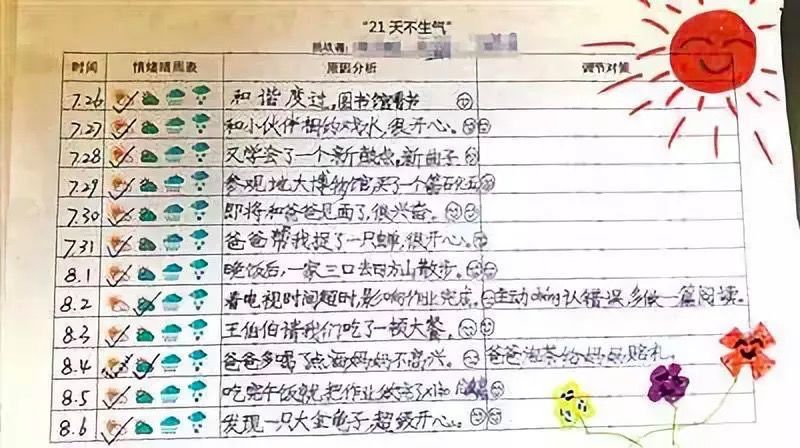 “21天不生气”
挑战者：
时间 情绪晴雨表 原因分析 调节对策
7.26 和谐度过,图书馆看书
7.27 和小伙伴相约戏水,很开心。
7.28 又学会了一个新鼓点,新曲子
7.29 参观地大博物馆,买了一个
7.30 即将和爸爸见面了,很兴奋。
7.31 爸爸帮我捉了一只蝉,很开心。
8.1 晚饭后,一家三口去白方山散步。
8.2 看电视时间超时,影响作业完成。 主动dǎng认错误,多做一篇阅读。
8.3 王伯伯请我们吃了一顿大餐,
8.4 爸爸多喝了点酒妈妈不高兴。 爸爸泡茶给妈妈赔礼。
8.5 吃完午饭就把作业做完了
8.6 发现一只大金龟子,超级开心。